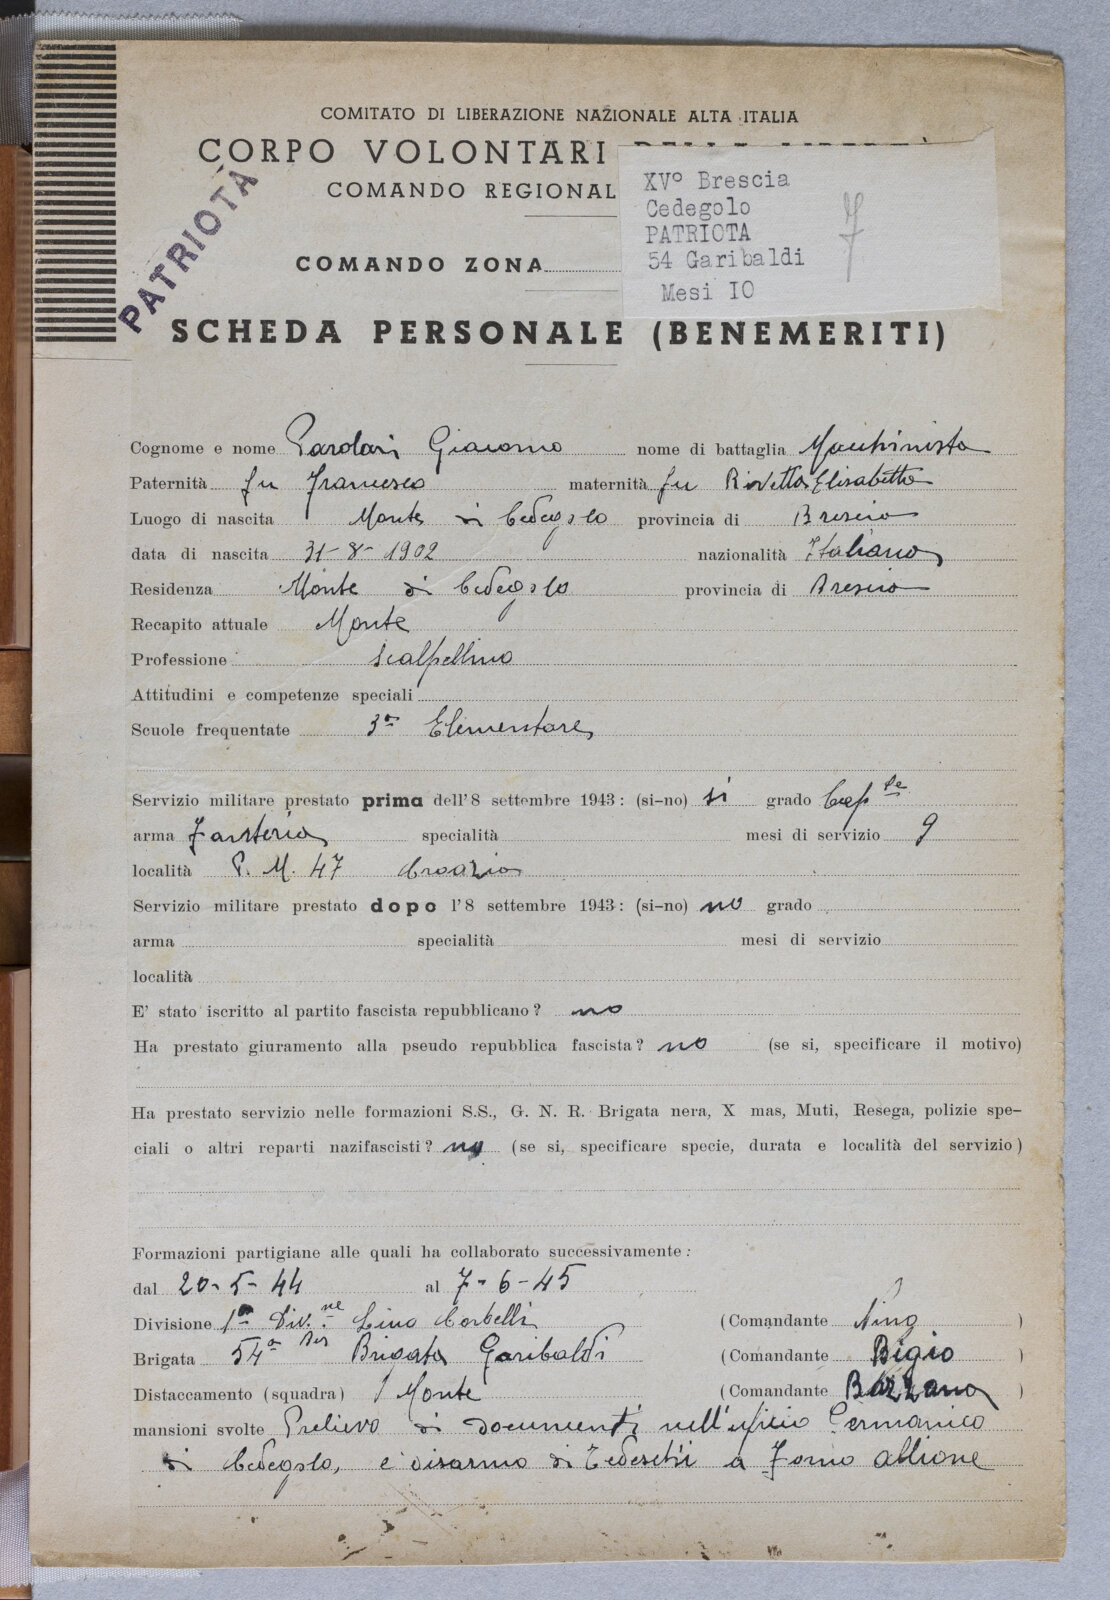 COMITATO DI LIBERAZIONE NAZIONALE ALTA ITALIA
CORPO VOLONTARI
COMANDO REGIONAL
PATRIOTA
XV° Brescia
Cedegolo
PATRIOTA
54 Garibaldi
Mesi IO
7
COMANDO ZONA
SCHEDA PERSONALE (BENEMERITI)
Cognome e nome Parolari Giacomo nome di battaglia Macchinista
Paternità fu Francesco maternità fu Rivetta Elisabetta
Luogo di nascita Monte di Cedegolo provincia di Brescia
data di nascita 31-8-1902 nazionalità Italiana
Residenza Monte di Cedegolo provincia di Brescia
Recapito attuale Monte
Professione scalpellino
Attitudini e competenze speciali
Scuole frequentate 3a Elementare
Servizio militare prestato prima dell'8 settembre 1943: (si-no) si grado Cap le
arma Fanteria specialità mesi di servizio 9
località P. M. 47 Croazia
Servizio militare prestato dopo l'8 settembre 1943: (si-no) no grado
arma specialità mesi di servizio
località
E' stato iscritto al partito fascista repubblicano? no
Ha prestato giuramento alla pseudo repubblica fascista? no (se si, specificare il motivo)
Ha prestato servizio nelle formazioni S.S., G. N. R. Brigata nera, X mas, Muti, Resega, polizie spe-
ciali o altri reparti nazifascisti? no (se si, specificare specie, durata e località del servizio)
Formazioni partigiane alle quali ha collaborato successivamente:
dal 20-5-44 al 7-6-45
Divisione 1a Div.ne Lino Corbelli (Comandante Nino )
Brigata 54a Bis Brigata Garibaldi (Comandante Bigio )
Distaccamento (squadra) Monte (Comandante Bazzana )
mansioni svolte Prelievo di documenti nell'uficio Germanico
di Cedegolo, e disarmo di Tedeschi a Forno Allione